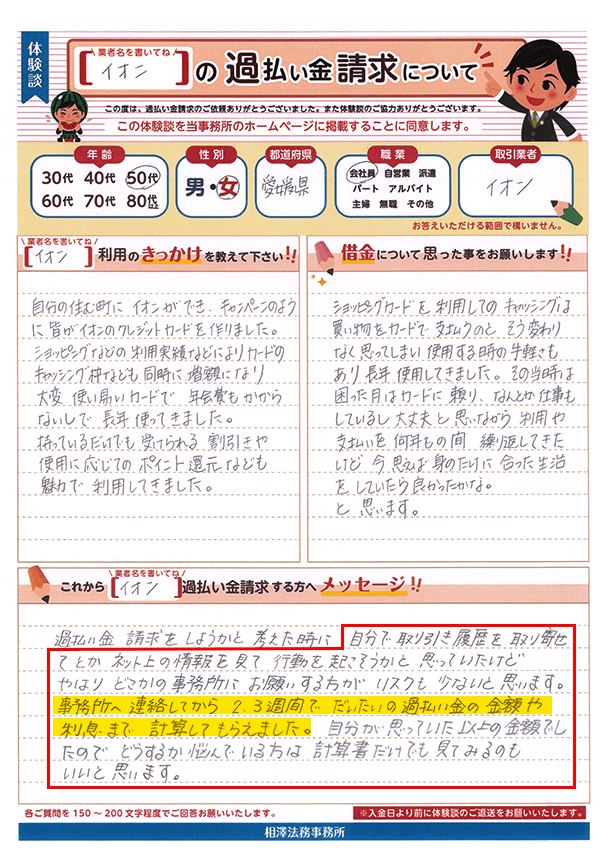 体験談
業者名を書いてね
[イオン]の過払い金請求について
この度は、過払い金請求のご依頼ありがとうございました。また体験談のご協力ありがとうございます。
この体験談を当事務所のホームページに掲載することに同意します。
年齢
30代 40代 50代
60代 70代 80代以上
性別
男・女
都道府県
愛媛県
職業
会社員 自営業 派遣
パート アルバイト
主婦 無職 その他
取引業者
イオン
お答えいただける範囲で構いません。
業者名を書いてね
[イオン]利用のきっかけを教えて下さい!!
自分の住む町に イオンができ、キャンペーンのよう
に 皆がイオンのクレジットカードを作りました。
ショッピングなどの 利用実績などによりカードの
キャッシング枠なども 同時に 増額になり
大変 使い易いカードで 年会費も かから
ないしで 長年 使ってきました。
持っているだけでも 受けられる 割引きや
使用に応じての ポイント 還元なども
魅力で 利用してきました。
借金について思った事をお願いします!!
ショッピングカードを 利用しての キャッシングは
買い物をカードで 支払うのと そう変わり
なく 思ってしまい 使用する時の手軽さも
あり 長年 使用してきました。その当時は
困った月はカードに 頼り、なんとか 仕事も
しているし 大丈夫と 思いながら 利用や
支払いを 何年もの間 繰り返してきた
けど 今 思えば 身のたけに 合った 生活
を していたら 良かったかな。
と 思います。
業者名を書いてね
これから[イオン]過払い金請求する方へメッセージ!!
過払い金 請求を しようかと 考えた時に 自分で 取り引き 履歴を 取り寄せ
てとか ネット上の情報を見て 行動を 起こそうかと 思っていたけど
やはり どこかの事務所に お願いする方が リスクも 少ないと思います。
事務所へ 連絡してから 2.3週間で だいたいの 過払い金の 金額や
利息まで 計算してもらえました。 自分が思っていた以上の金額でし
たので どうするか 悩んでいる方は 計算書だけでも 見てみるのも
いいと 思います。
各ご質問を150～200文字程度でご回答お願いいたします。
※入金日より前に体験談のご返送をお願いいたします。
相澤法務事務所